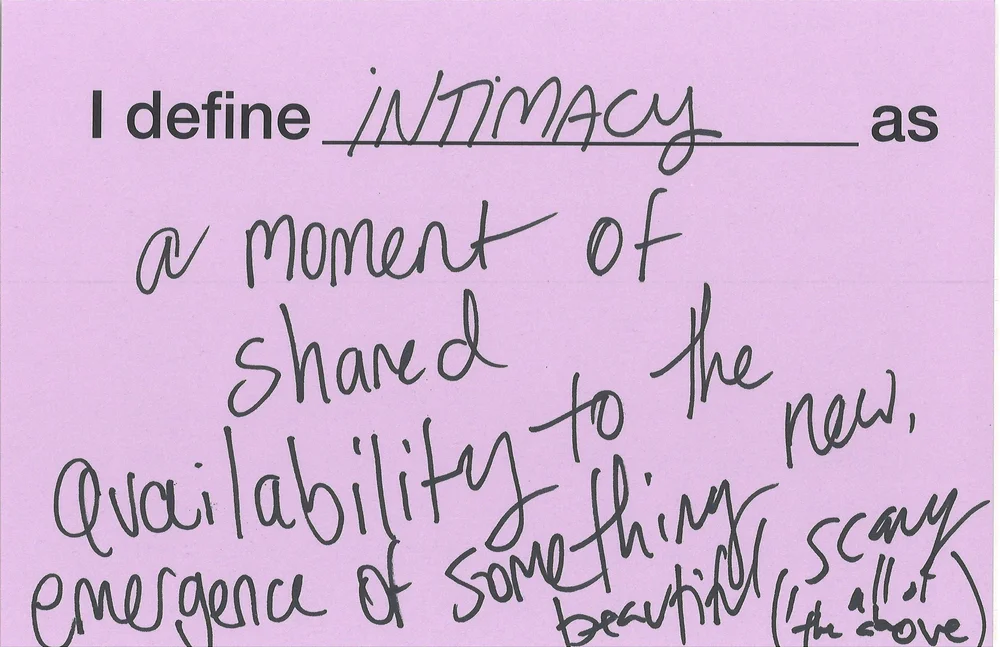 I define iNTiMACy as
a moment of
shared
availability to the
emergence of something new,
beautiful, scary
(all of
the above)